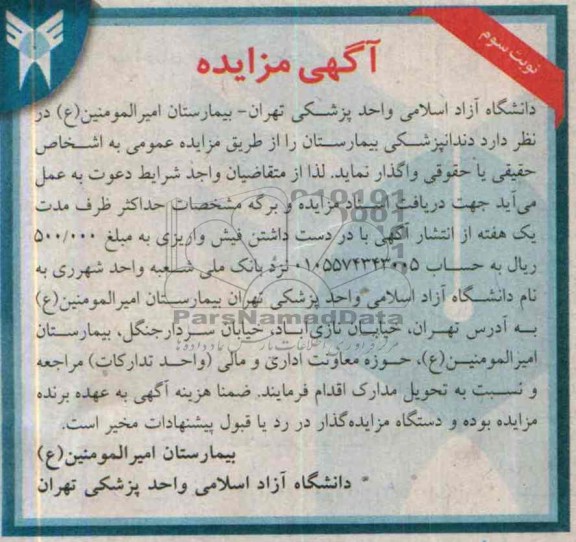 نوبت سوم
آگهی مزایده
دانشگاه آزاد اسلامی واحد پزشکی تهران- بیمارستان امیرالمومنین(ع) در
نظر دارد دندانپزشکی بیمارستان را از طریق مزایده عمومی به اشخاص
حقیقی یا حقوقی واگذار نماید. لذا از متقاضیان واجد شرایط دعوت به عمل
می‌آید جهت دریافت اسناد مزایده و برگه مشخصات حداکثر ظرف مدت
یک هفته از انتشار آگهی با در دست داشتن فیش واریزی به مبلغ ۵۰۰/۰۰۰
ریال به حساب ۰۱۰۵۵۷۴۳۴۳۰۰۵ نزد بانک ملی شعبه واحد شهرری به
نام دانشگاه آزاد اسلامی واحد پزشکی تهران بیمارستان امیرالمومنین(ع)
به آدرس تهران، خیابان نازی‌آباد، خیابان سردارجنگل، بیمارستان
امیرالمومنین(ع)، حوزه معاونت اداری و مالی (واحد تدارکات) مراجعه
و نسبت به تحویل مدارک اقدام فرمایند. ضمنا هزینه آگهی به عهده برنده
مزایده بوده و دستگاه مزایده‌گذار در رد یا قبول پیشنهادات مخیر است.
بیمارستان امیرالمومنین(ع)
دانشگاه آزاد اسلامی واحد پزشکی تهران
ParsNamadData